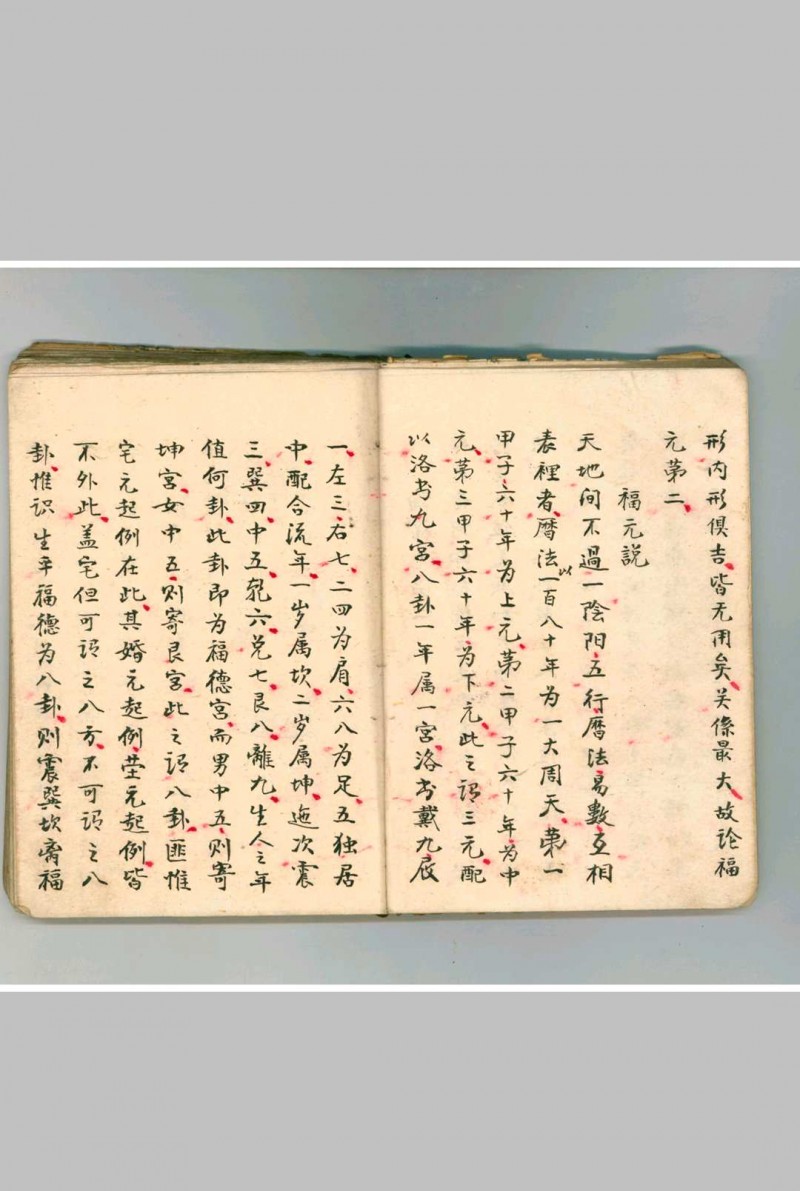 形内形俱吉、皆无用矣、关係最大、故论福
元第二、
福元説
天地间不過一陰阳五行、曆法易數互相
表裡者、曆法以一百八十年为一大周天、第一
甲子、六十年为上元、第二甲子六十年为中
元、第三甲子六十年为下元、此之谓三元、配
以洛书九宫、八卦一年属一宫、洛书戴九履
一、左三、右七、二四为肩、六八为足、五独居
中、配合流年、一岁属坎、二岁属坤、迤次震
三、巽四、中五、乾六、兑七、艮八、離九、生人之年
值何卦、此卦即为福德宫、而男中五、则寄
坤宫、女中五、则寄艮宫、此之谓八卦、匪惟
宅元起例在此、其婚元起例、茔元起例、皆
不外此、盖宅但可谓之八方、不可谓之八
卦、惟识生平福德为八卦、则震巽坎离福